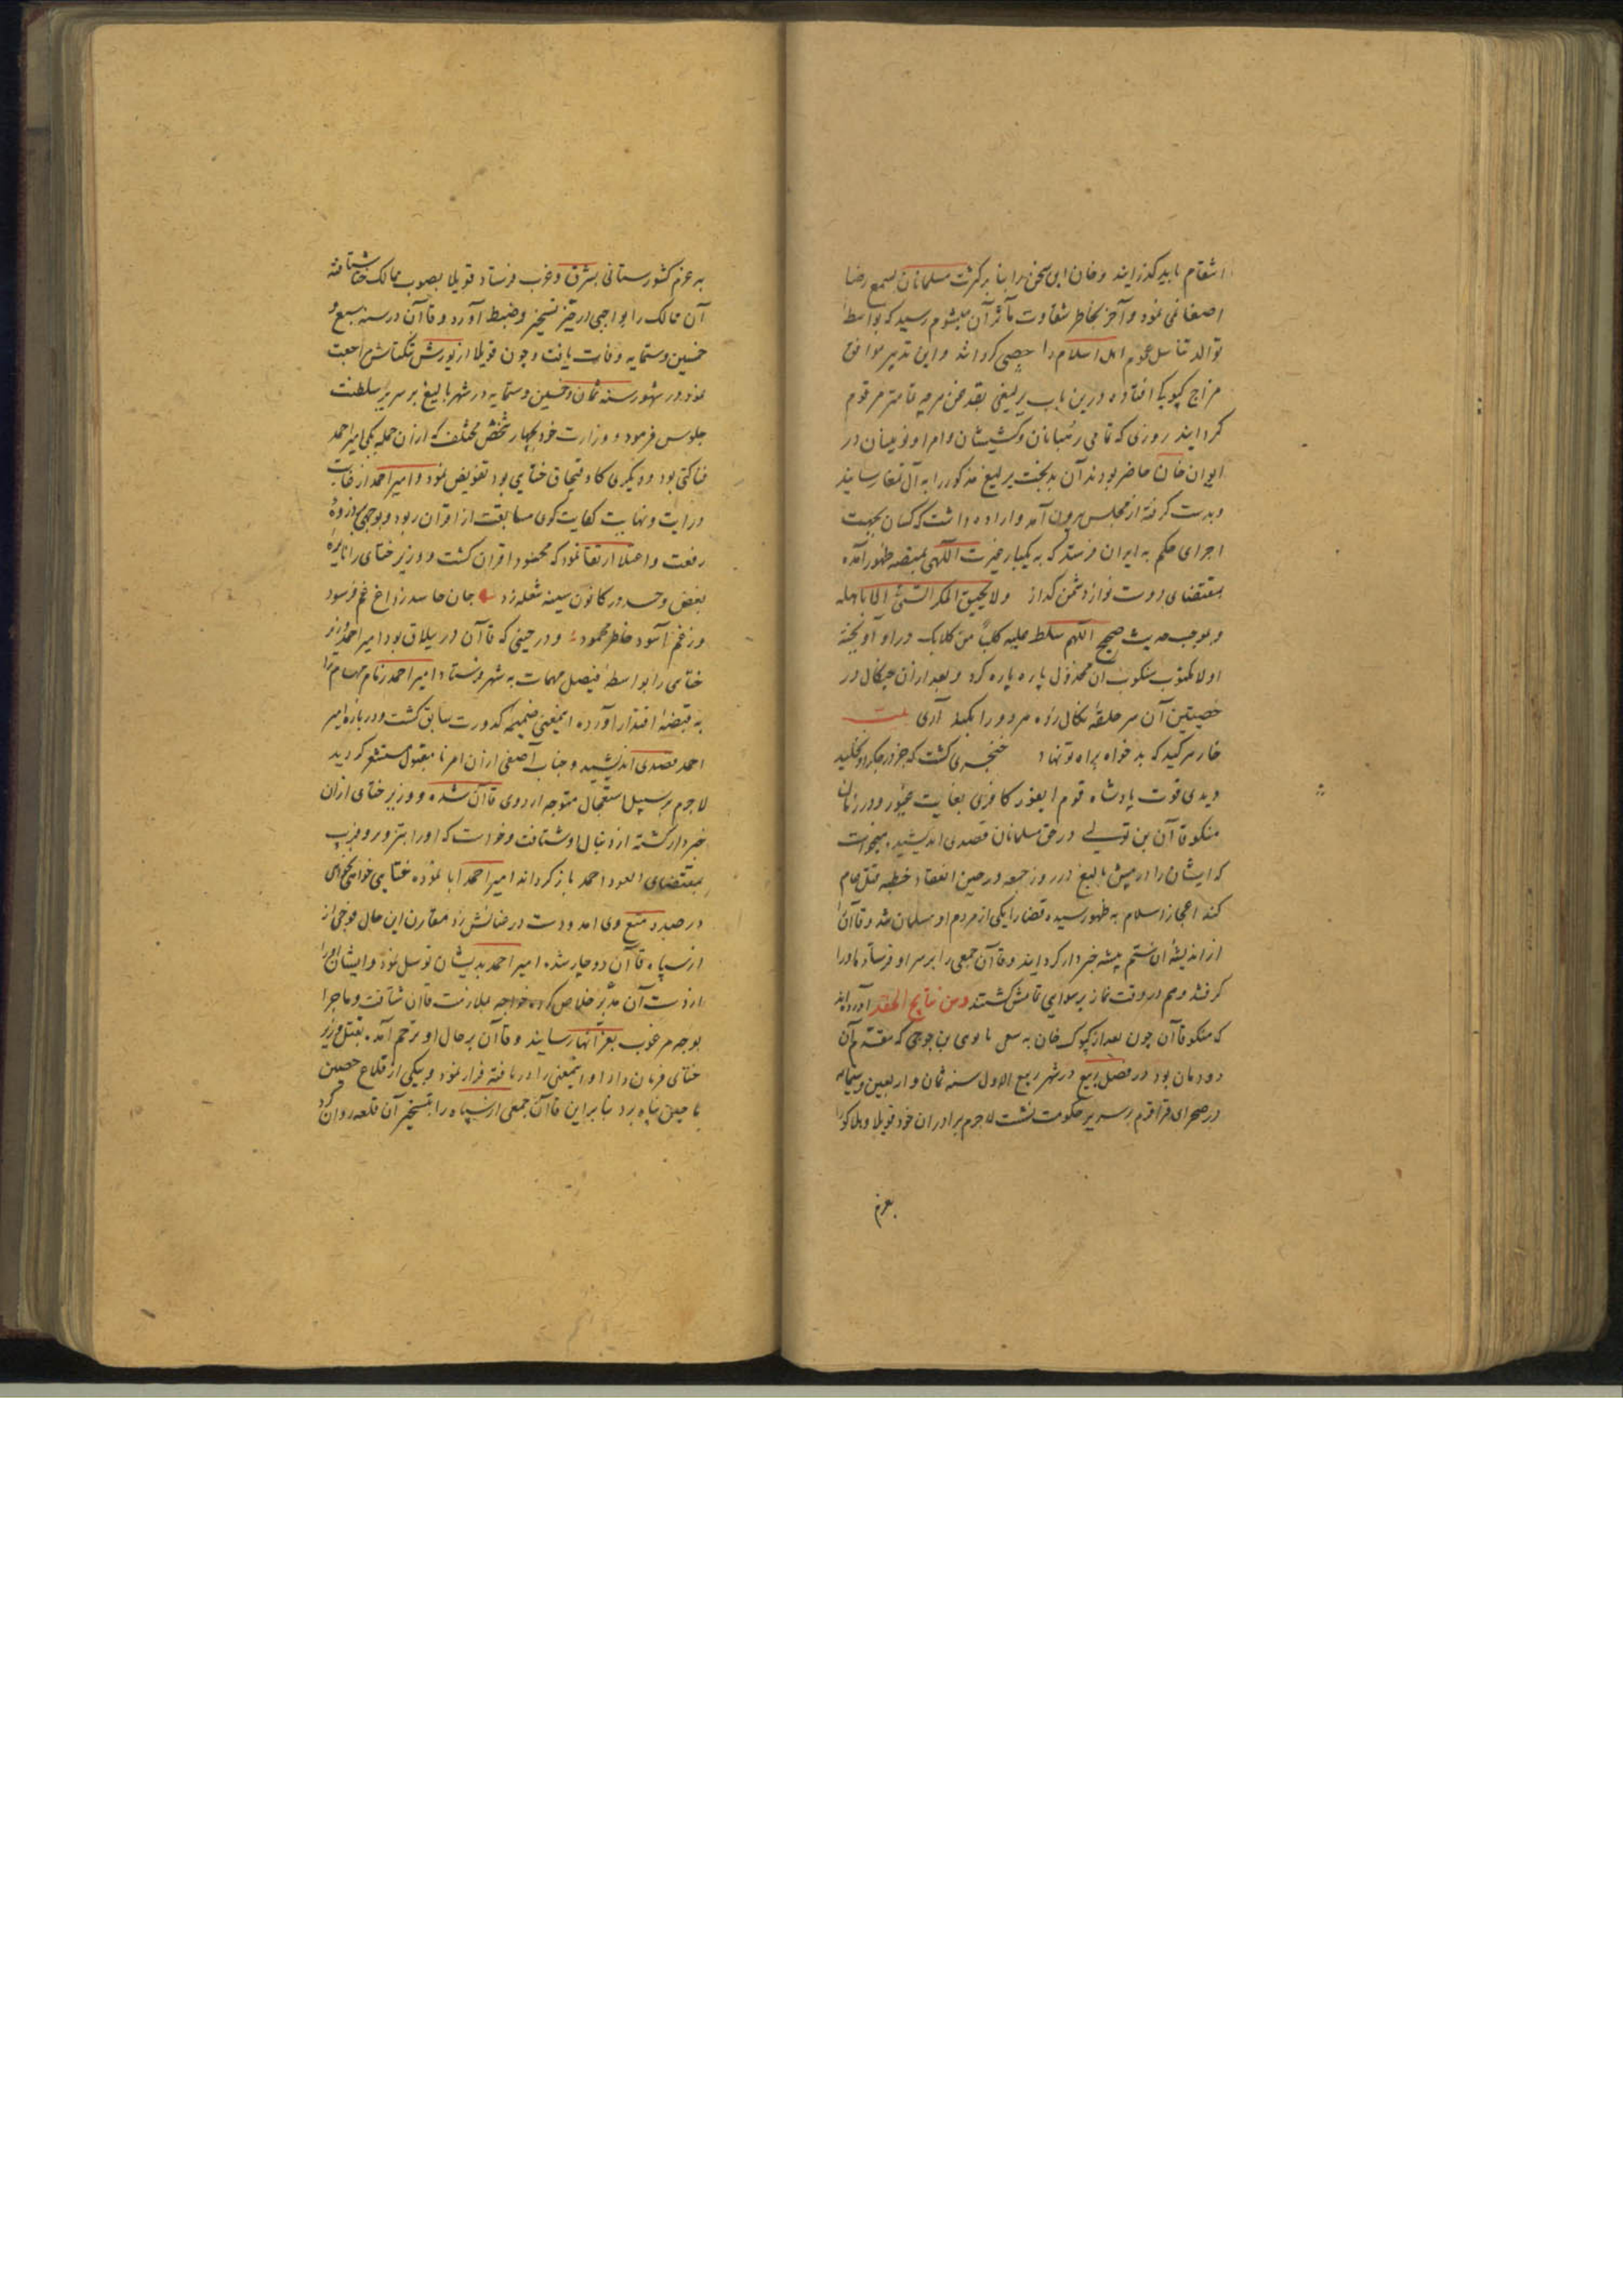 انتقام باید گذرانید و خان این سخن را بنابر کثرت مسلمانان بسمع رضا
اصغا نمی نمود و آخر بخاطر شقاوت مآثر آن میشوم رسید که بواسطهٔ
توالد تناسل عموم اهل اسلام را خصی کردانند و این تدبیر موافق
مزاج کیوک افتاده درین باب یرلیغی بقدغن هرچه تمامتر مرقوم
کردانید روزی که تمامی رهبانان و کشیشان و امرا و نوینان در
ایوان خان حاضر بودند آن بدبخت یرلیغ مذکور را به آل تمغا رسانید
و بدست کرفته از مجلس بیرون آمد و اراده داشت که کسان بجهت
اجرای حکم به ایران فرستد که به یکبار غیرت الهی بمنصه ظهور آمده
بمقتضای دوست نواز دشمن کداز ولا یحیق المکر السیئ الا باهله
و بموجب حدیث صحیح اللهم سلط علیه کلبا من کلابک در او آویخته
اولا مکتوب منکوب آن مخذول پاره پاره کرد و بعد از آن چنکال در
خصیتین آن سر حلقهٔ نکال زده مردود را بکند آری بیت
خار هر کید که بدخواه براه تو نهاد خنجری کشت که جز در جکر او نخلید
و یدی قوت پادشاه قوم ایغور کافری بغایت جبور و در زمان
منکو قاآن بن تولی در حق مسلمانان قصدی اندیشید میخواست
که ایشان را در بیش بالیغ در روز جمعه در حین انعقاد خطبه قتل عام
کند اعجاز اسلام به ظهور رسیده قضا را یکی از مردم او مسلمان شد و قاآن را
از اندیشهٔ آن ستم پیشه خبردار کردانید و قاآن جمعی را بر سر او فرستاد تا او را
کرفتند و هم در وقت نماز برسوایی تمامش کشتند و من نتایج الحقد آورده اند
که منکو قاآن چون بعد از کیوک خان به سعی باتوی بن جوجی که مقدم آن
دودمان بود در فصل ربیع در شهر ربیع الاول سنه ثمان و اربعین و ستمائه
در صحرای قراقرم بر سریر حکومت نشست لاجرم برادران خود قوبیلا و هلاکو را
بعزم
به عزم کشورستانی بشرق و غرب فرستاد قوبیلا بصوب ممالک ختا شتافته
آن ممالک را بواجبی در حیز تسخیر و ضبط آورد و قاآن در سنه سبع و
خمسین و ستمایه وفات یافت و چون قوبیلا از یورش ننکیاش مراجعت
نمود در شهور سنه ثمان و خمسین و ستمایه در شهر بالیغ بر سریر سلطنت
جلوس فرمود و وزارت خود بچهار شخص مختلف که از آن جمله یکی امیر احمد
فناکتی بود و دیکری کاو فنجان ختایی بود تفویض نمود و امیر احمد از غایت
درایت و نهایت کفایت کوی مسابقت از اقران ربود و بوجهی بذروهٔ
رفعت و اعتلا ارتقا نمود که محسود اقران کشت و وزیر ختای را نایرهٔ
بغض و حسد در کانون سینه شعله زد جان حاسد ز داغ غم فرسود
وز غم آسود خاطر محمود و در حینی که قاآن در ییلاق بود امیر احمد وزیر
ختای را بواسطهٔ فیصل مهمات به شهر فرستاد امیر احمد زمام مهام را
به قبضهٔ اقتدار آورده اینمعنی ضمیمهٔ کدورت سابق کشت و در باره امیر
احمد قصدی اندیشید و جناب آصفی از آن امر نا مقبول مستشعر کردید
لاجرم بر سبیل استعجال متوجه اردوی قاآن شده و وزیر ختای از آن
خبردار کشته از دنبال او شتافت و خواست که او را بتزویر و فریب
بمقتضای العود احمد باز کرداند امیر احمد ابا نموده ختایی خواهی نخواهی
در صدد منع وی آمد و دست در عنانش زد مقارن این حال فوجی از
از سپاه قاآن دوچار شد امیر احمد بدیشان توسل نمود و ایشان او را
از دست آن مدبر خلاص کرده خواجه بملازمت قاآن شتافت و ماجرا
بوجه مرغوب بعز انها رسانید و قاآن بر حال او ترحم آمد بقتل وزیر
ختای فرمان داد او اینمعنی را دریافته فرار نمود و بیکی از قلاع حصین
ماچین پناه برد بنا براین قاآن جمعی از سپاه را بتسخیر آن قلعه روان کرد